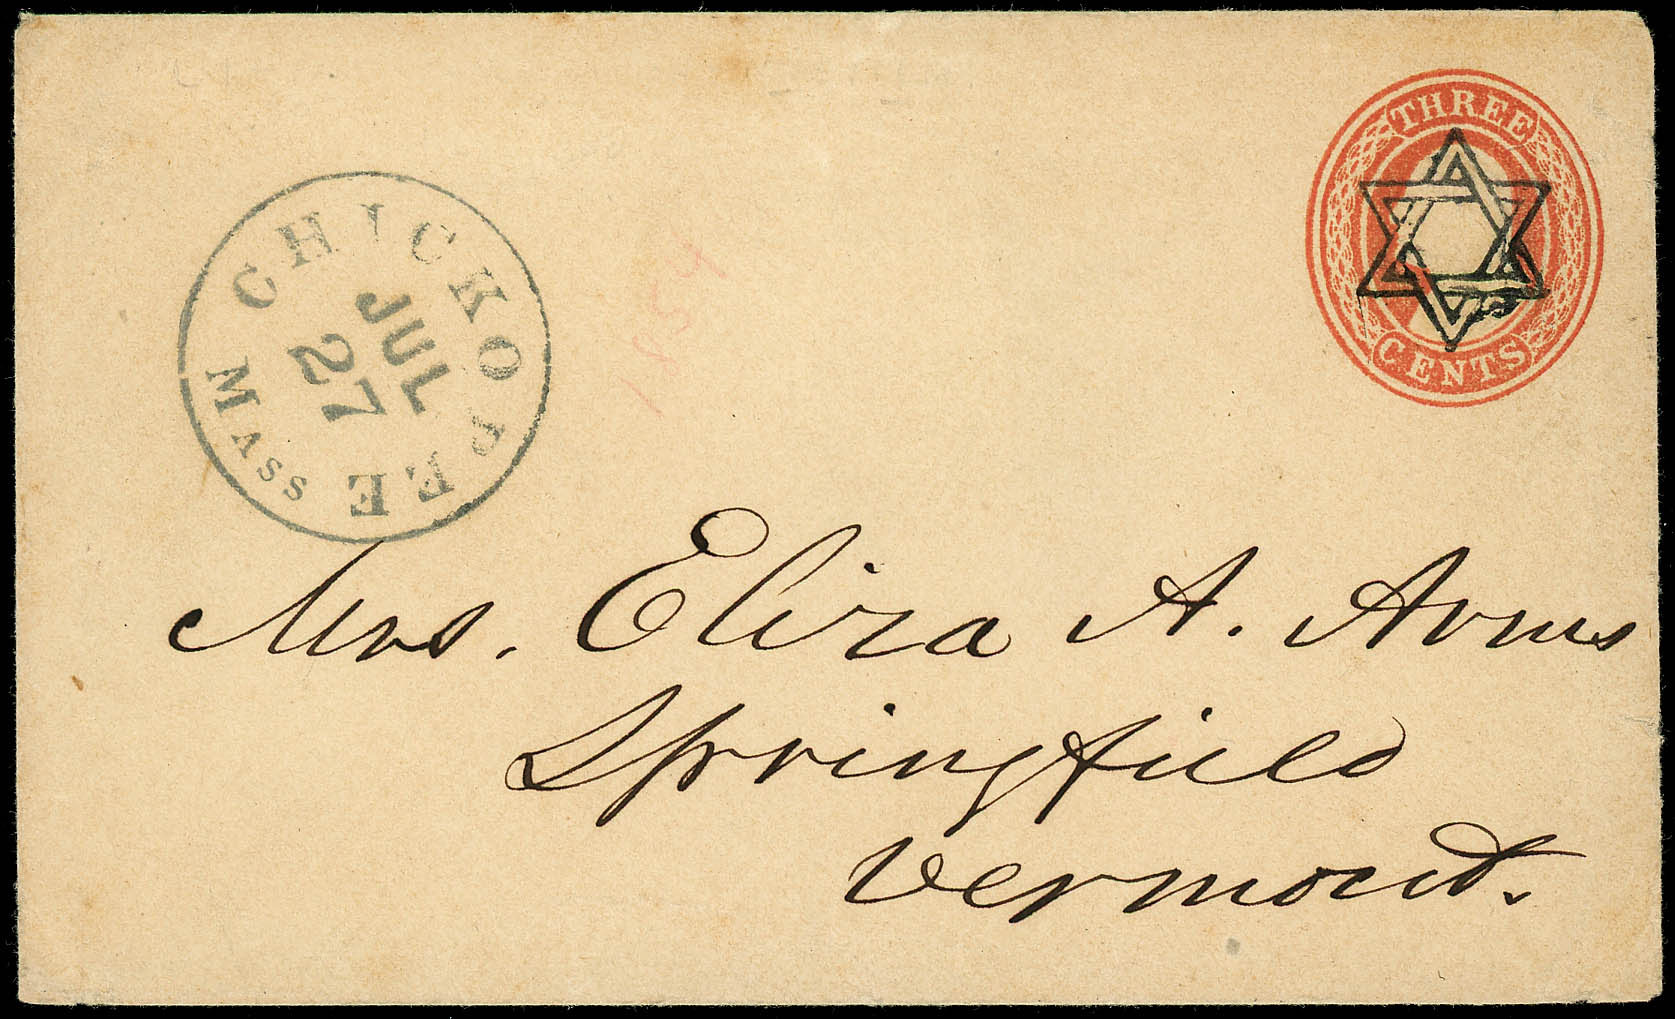 THREE
CENTS
CHICKOPEE
MASS
JUL
27
Mrs. Eliza A. Arms
Springfield
Vermont.